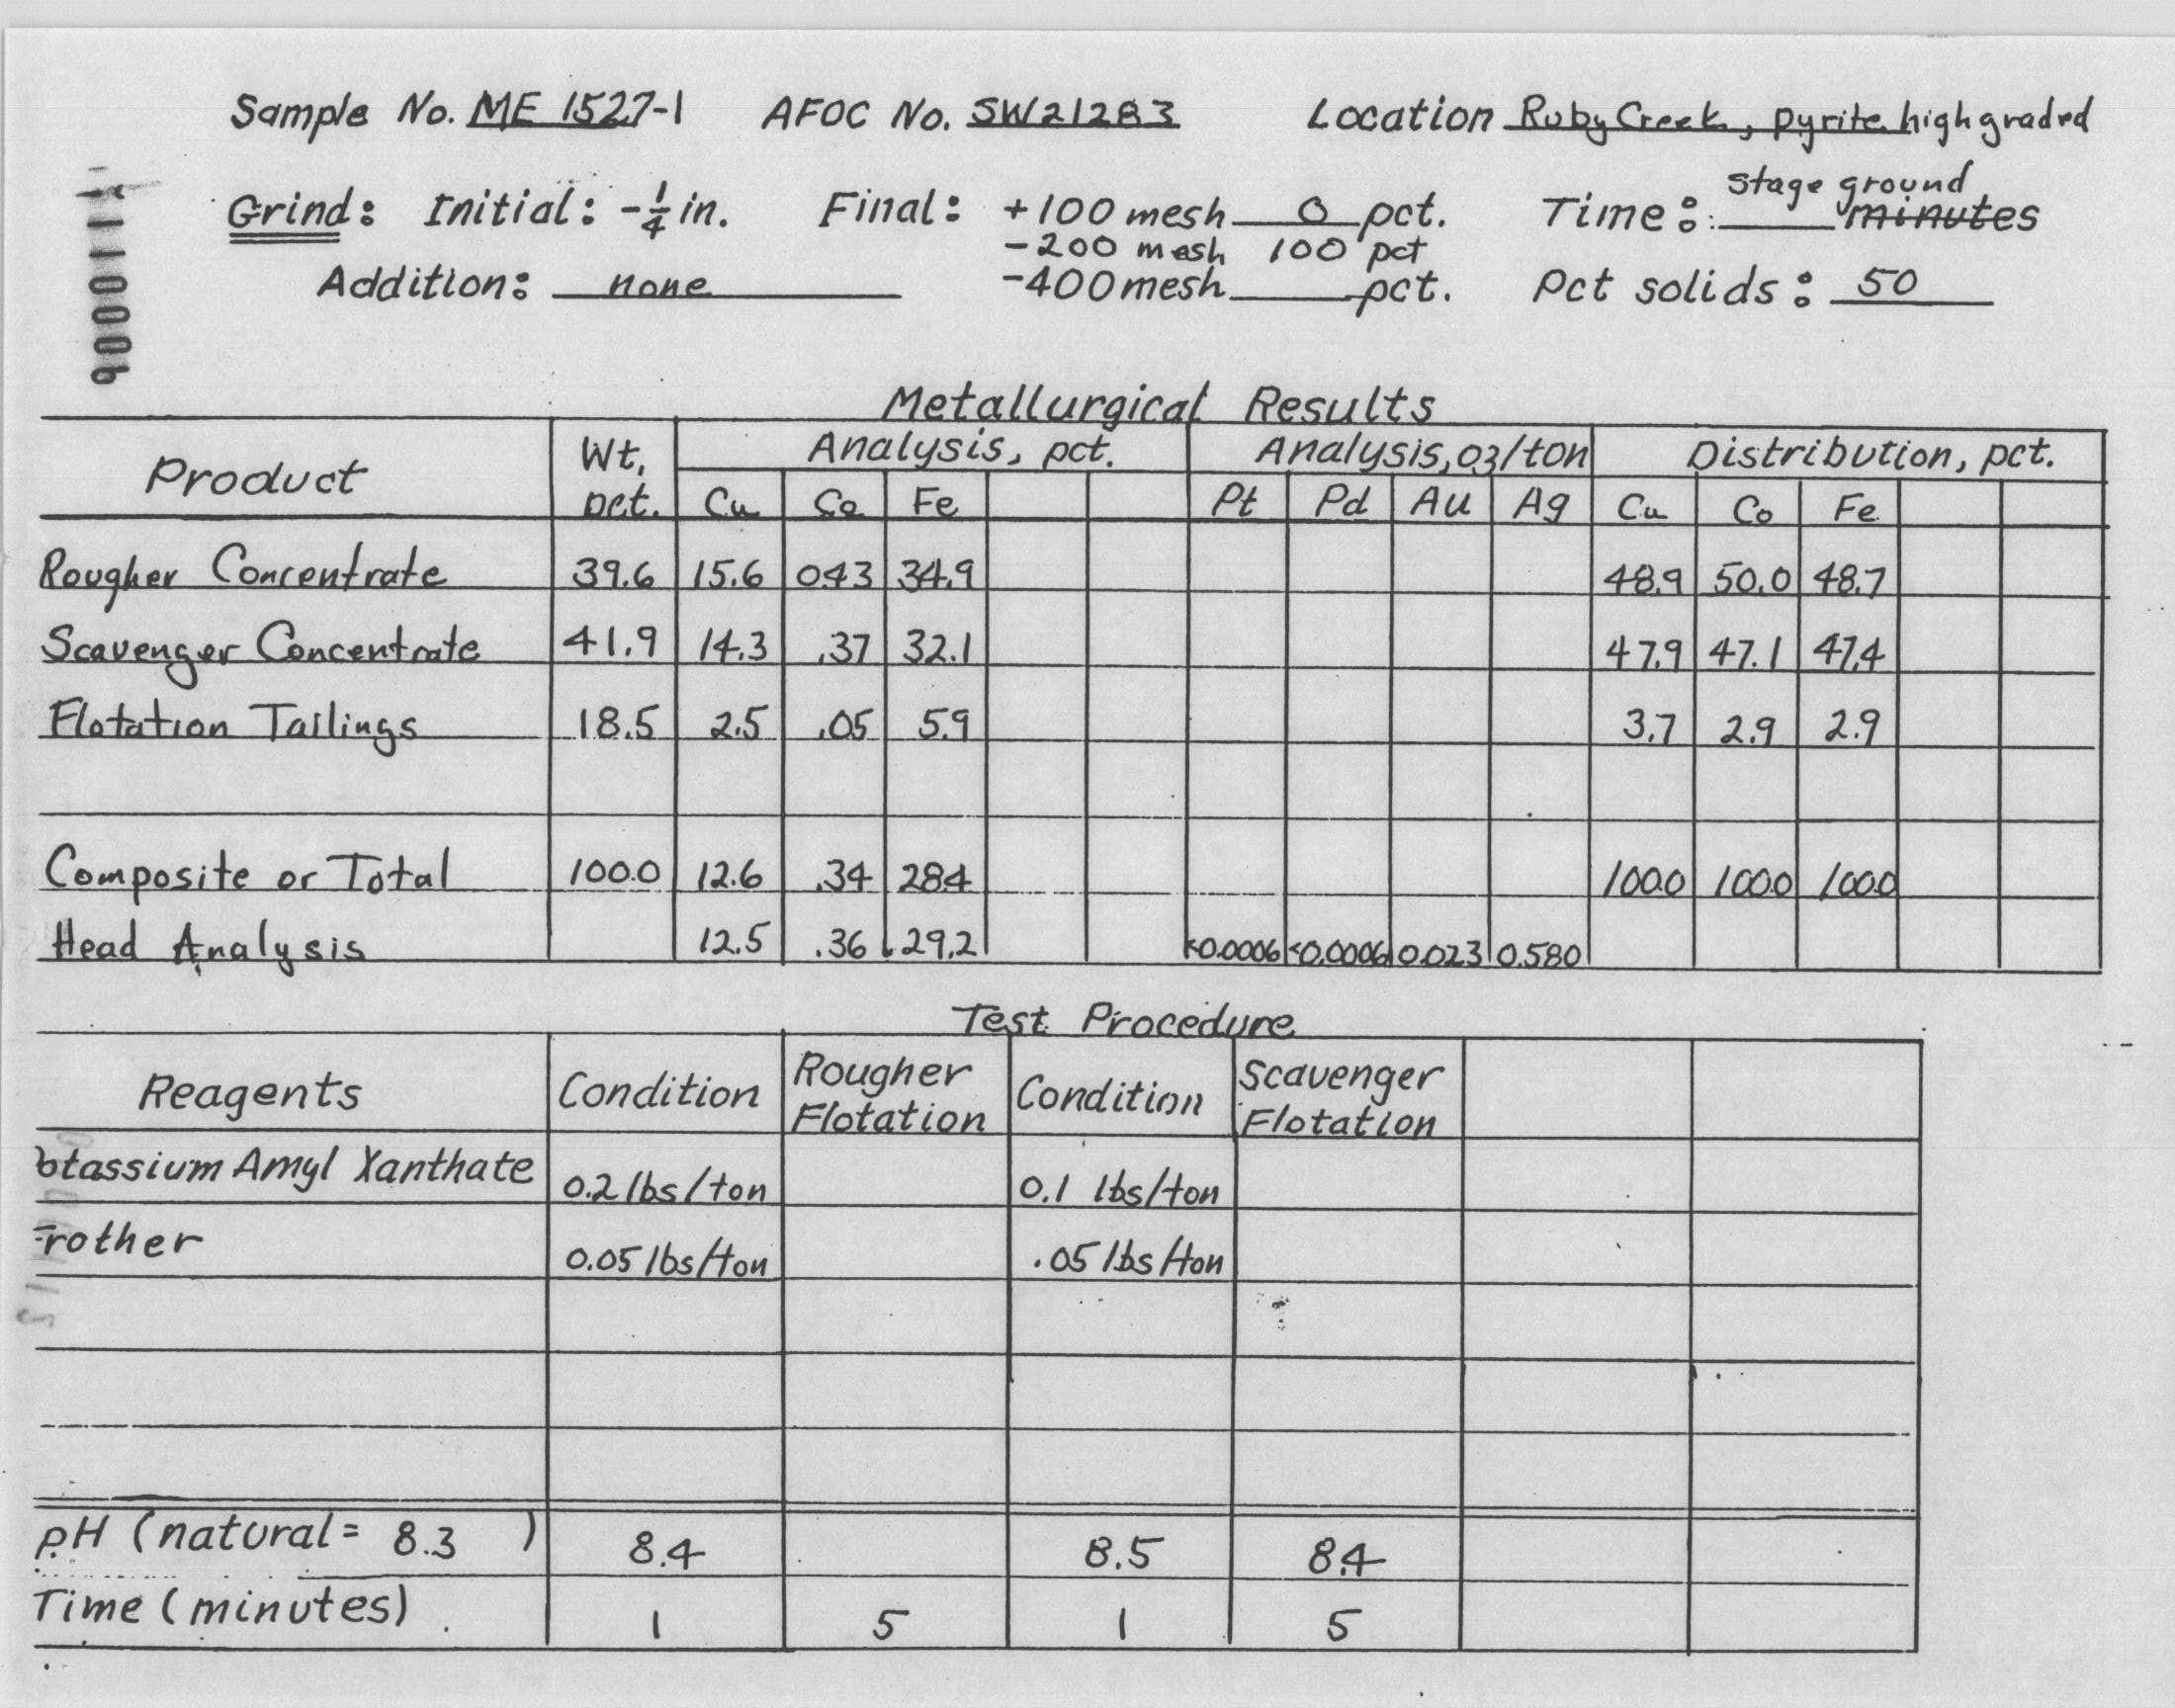 Sample No. ME 1527-1 AFOC No. SW21283 Location Ruby Creek, pyrite high graded
Grind: Initial: -1/4 in. Final: +100 mesh 0 pct. Time: stage ground minutes
-200 mesh 100 pct
Addition: none -400 mesh pct. Pct solids: 50
Metallurgical Results
Product Wt. pct. Analysis, pct. Analysis, oz/ton Distribution, pct.
Cu Co Fe Pt Pd Au Ag Cu Co Fe
Rougher Concentrate 39.6 15.6 0.43 34.9 48.9 50.0 48.7
Scavenger Concentrate 41.9 14.3 .37 32.1 47.9 47.1 47.4
Flotation Tailings 18.5 2.5 .05 5.9 3.7 2.9 2.9
Composite or Total 100.0 12.6 .34 28.4 100.0 100.0 100.0
Head Analysis 12.5 .36 29.2 <0.0006 <0.0006 0.023 0.580
Test Procedure
Reagents Condition Rougher Flotation Condition Scavenger Flotation
otassium Amyl Xanthate 0.2 lbs/ton 0.1 lbs/ton
Frother 0.05 lbs/ton .05 lbs/ton
pH (natural = 8.3 ) 8.4 8.5 8.4
Time (minutes) 1 5 1 5